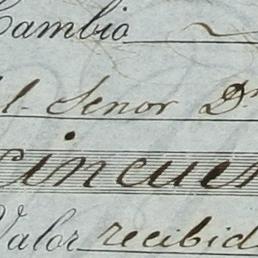 Cambio
al Senor Dn
cincuen
Valor recibid